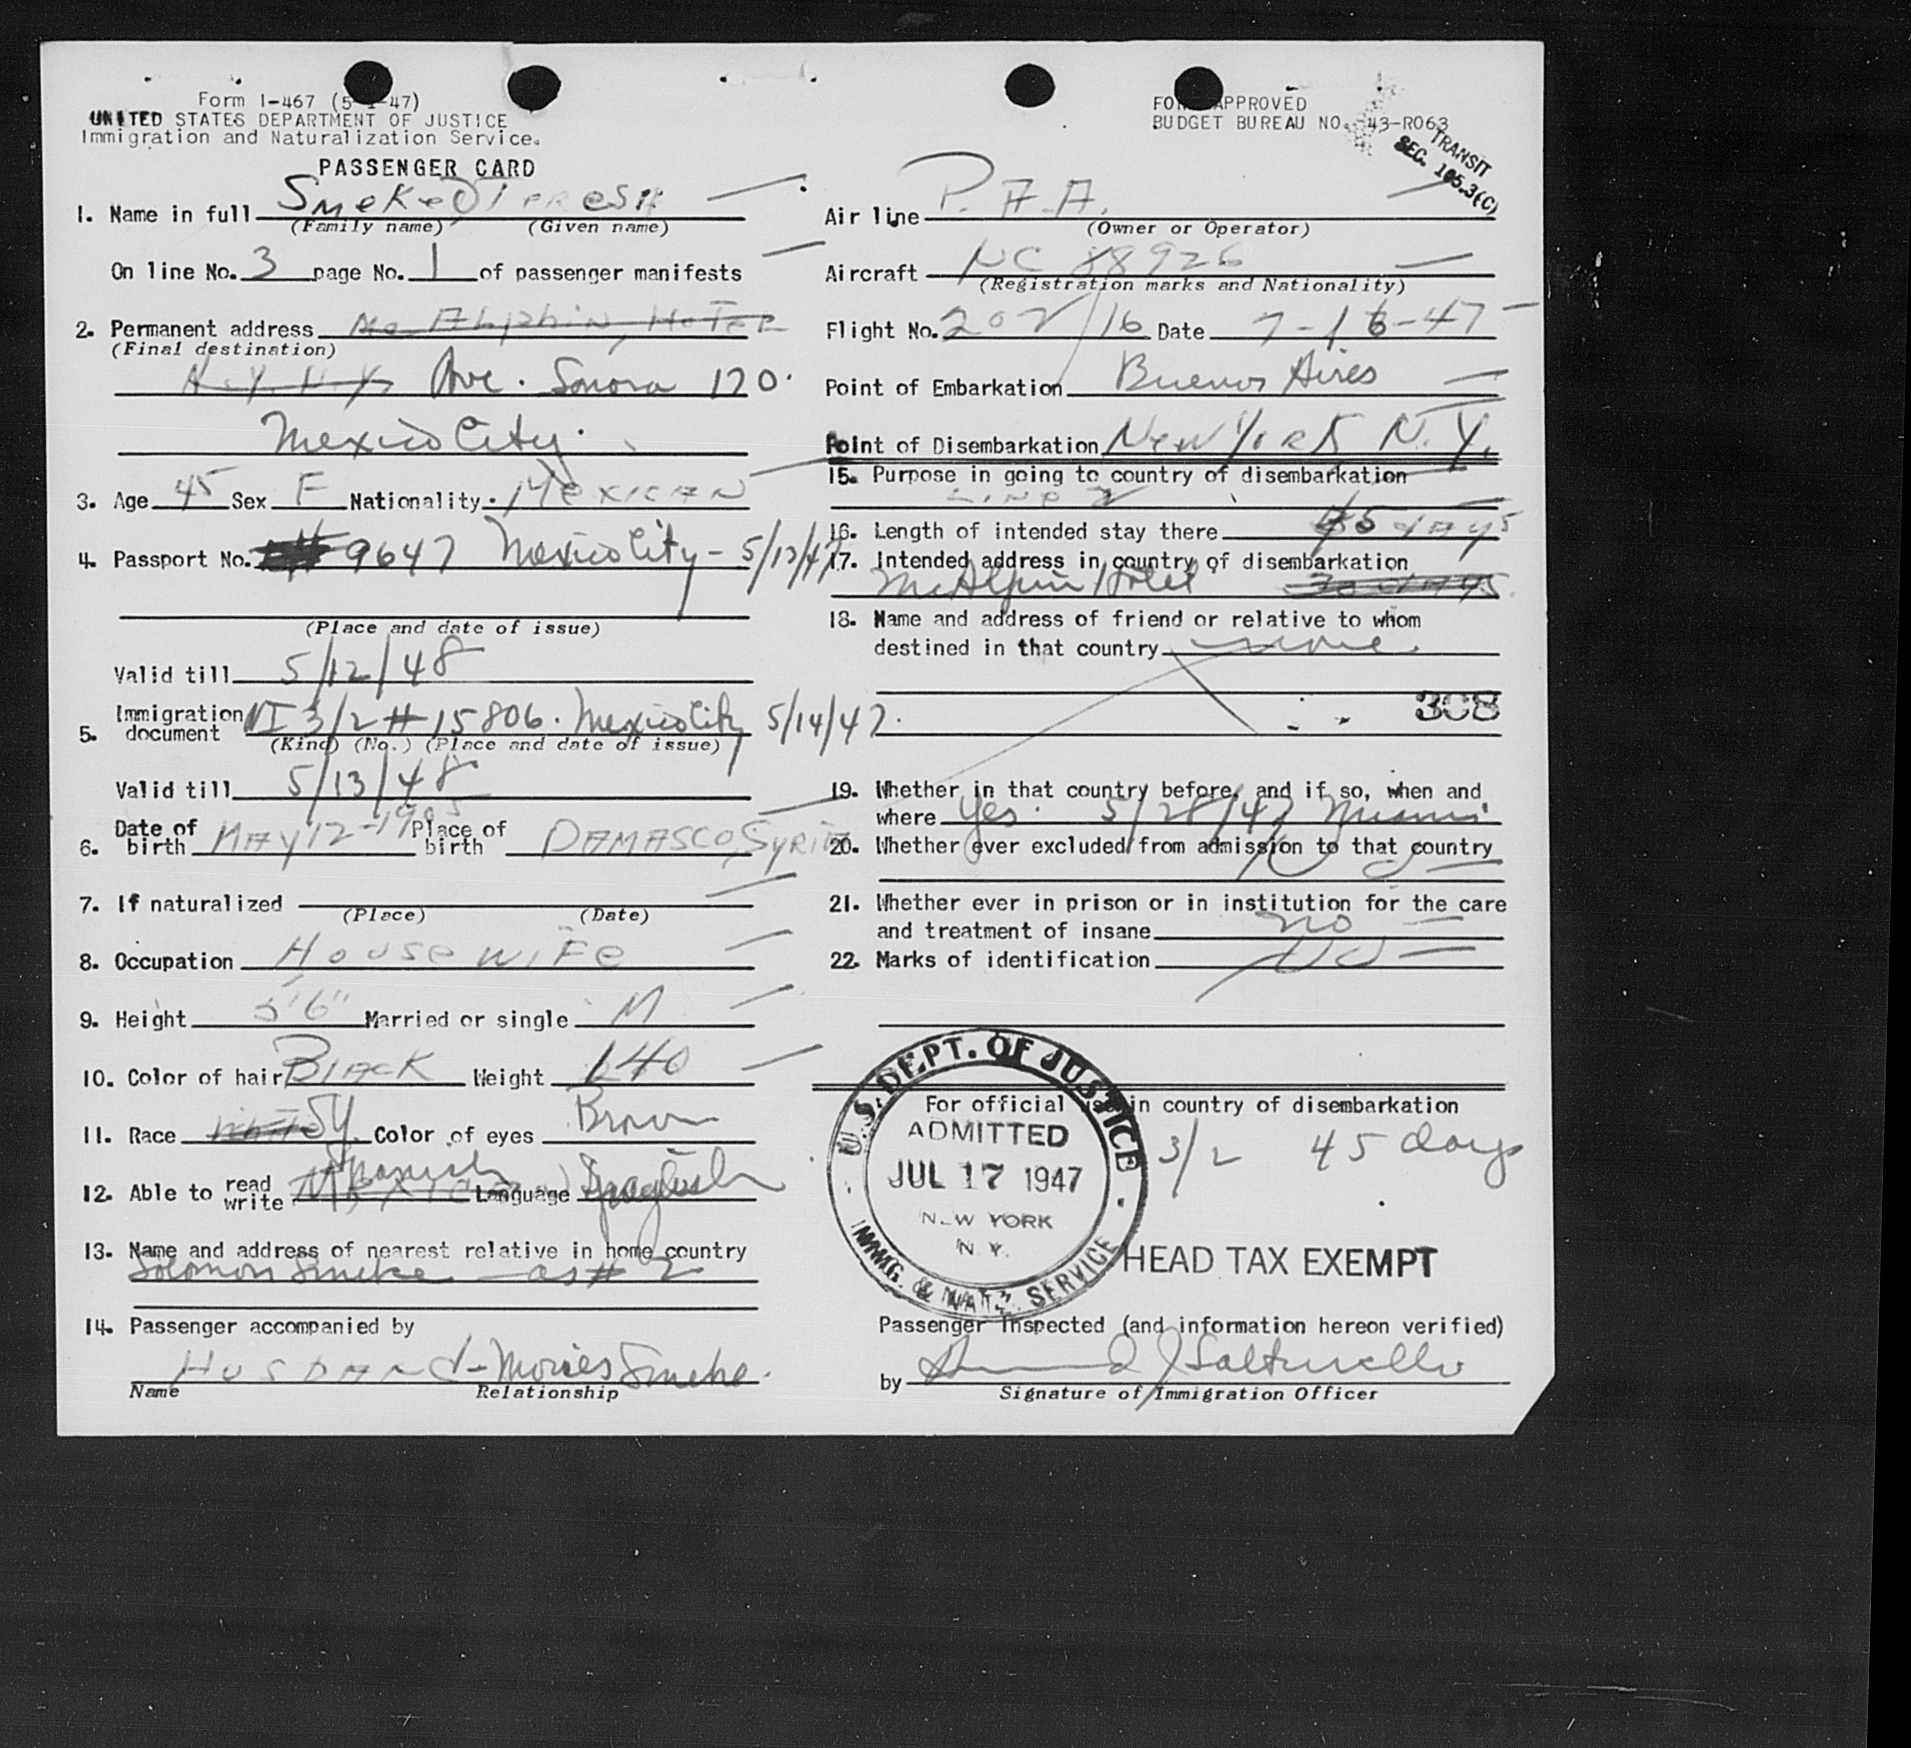 Form I-467 (5-1-47)
UNITED STATES DEPARTMENT OF JUSTICE
Immigration and Naturalization Service.
PASSENGER CARD
1. Name in full Smeke
(Family name) (Given name)
On line No. 3 page No. 1 of passenger manifests
2. Permanent address Mc Alphin, Hotel
(Final destination)
N.Y. N.Y. Ave. Sonora 120.
Mexico City.
3. Age 45 Sex F Nationality Mexican
4. Passport No. # 9647 Mexico City - 5/13/47
(Place and date of issue)
Valid till 5/12/48
5. Immigration document VI 3/2 # 15806. Mexico City 5/14/47.
(Kind) (No.) (Place and date of issue)
Valid till 5/13/48
6. Date of birth MAY 12-1905 Place of birth DAMASCO, SYRIA
7. If naturalized
(Place) (Date)
8. Occupation House wife
9. Height 5'6" Married or single M
10. Color of hair Black Weight 140
11. Race Sy. Color of eyes Brown
12. Able to read write Spanish Language
13. Name and address of nearest relative in home country
Solomon Smeke - as # 2
14. Passenger accompanied by
HUSBAND - Moises Smeke.
Name Relationship
FORM APPROVED
BUDGET BUREAU NO. 43-R063
TRANSIT
SEC. 105.3(C)
Air line P.A.A.
(Owner or Operator)
Aircraft NC 88926
(Registration marks and Nationality)
Flight No. 202/16 Date 7-16-47
Point of Embarkation Buenos Aires
Point of Disembarkation New York N.Y.
15. Purpose in going to country of disembarkation
16. Length of intended stay there 45 days
17. Intended address in country of disembarkation
McAlpin Hotel 30 days
18. Name and address of friend or relative to whom
destined in that country none
308
19. Whether in that country before, and if so, when and
where Yes. 5/28/47 Miami
20. Whether ever excluded from admission to that country
No
21. Whether ever in prison or in institution for the care
and treatment of insane no
22. Marks of identification No
For official use in country of disembarkation
U.S. DEPT. OF JUSTICE
ADMITTED
JUL 17 1947
NEW YORK
N.Y.
IMMG. & NATZ. SERVICE
3/2 45 days
HEAD TAX EXEMPT
Passenger Inspected (and information hereon verified)
by
Signature of Immigration Officer